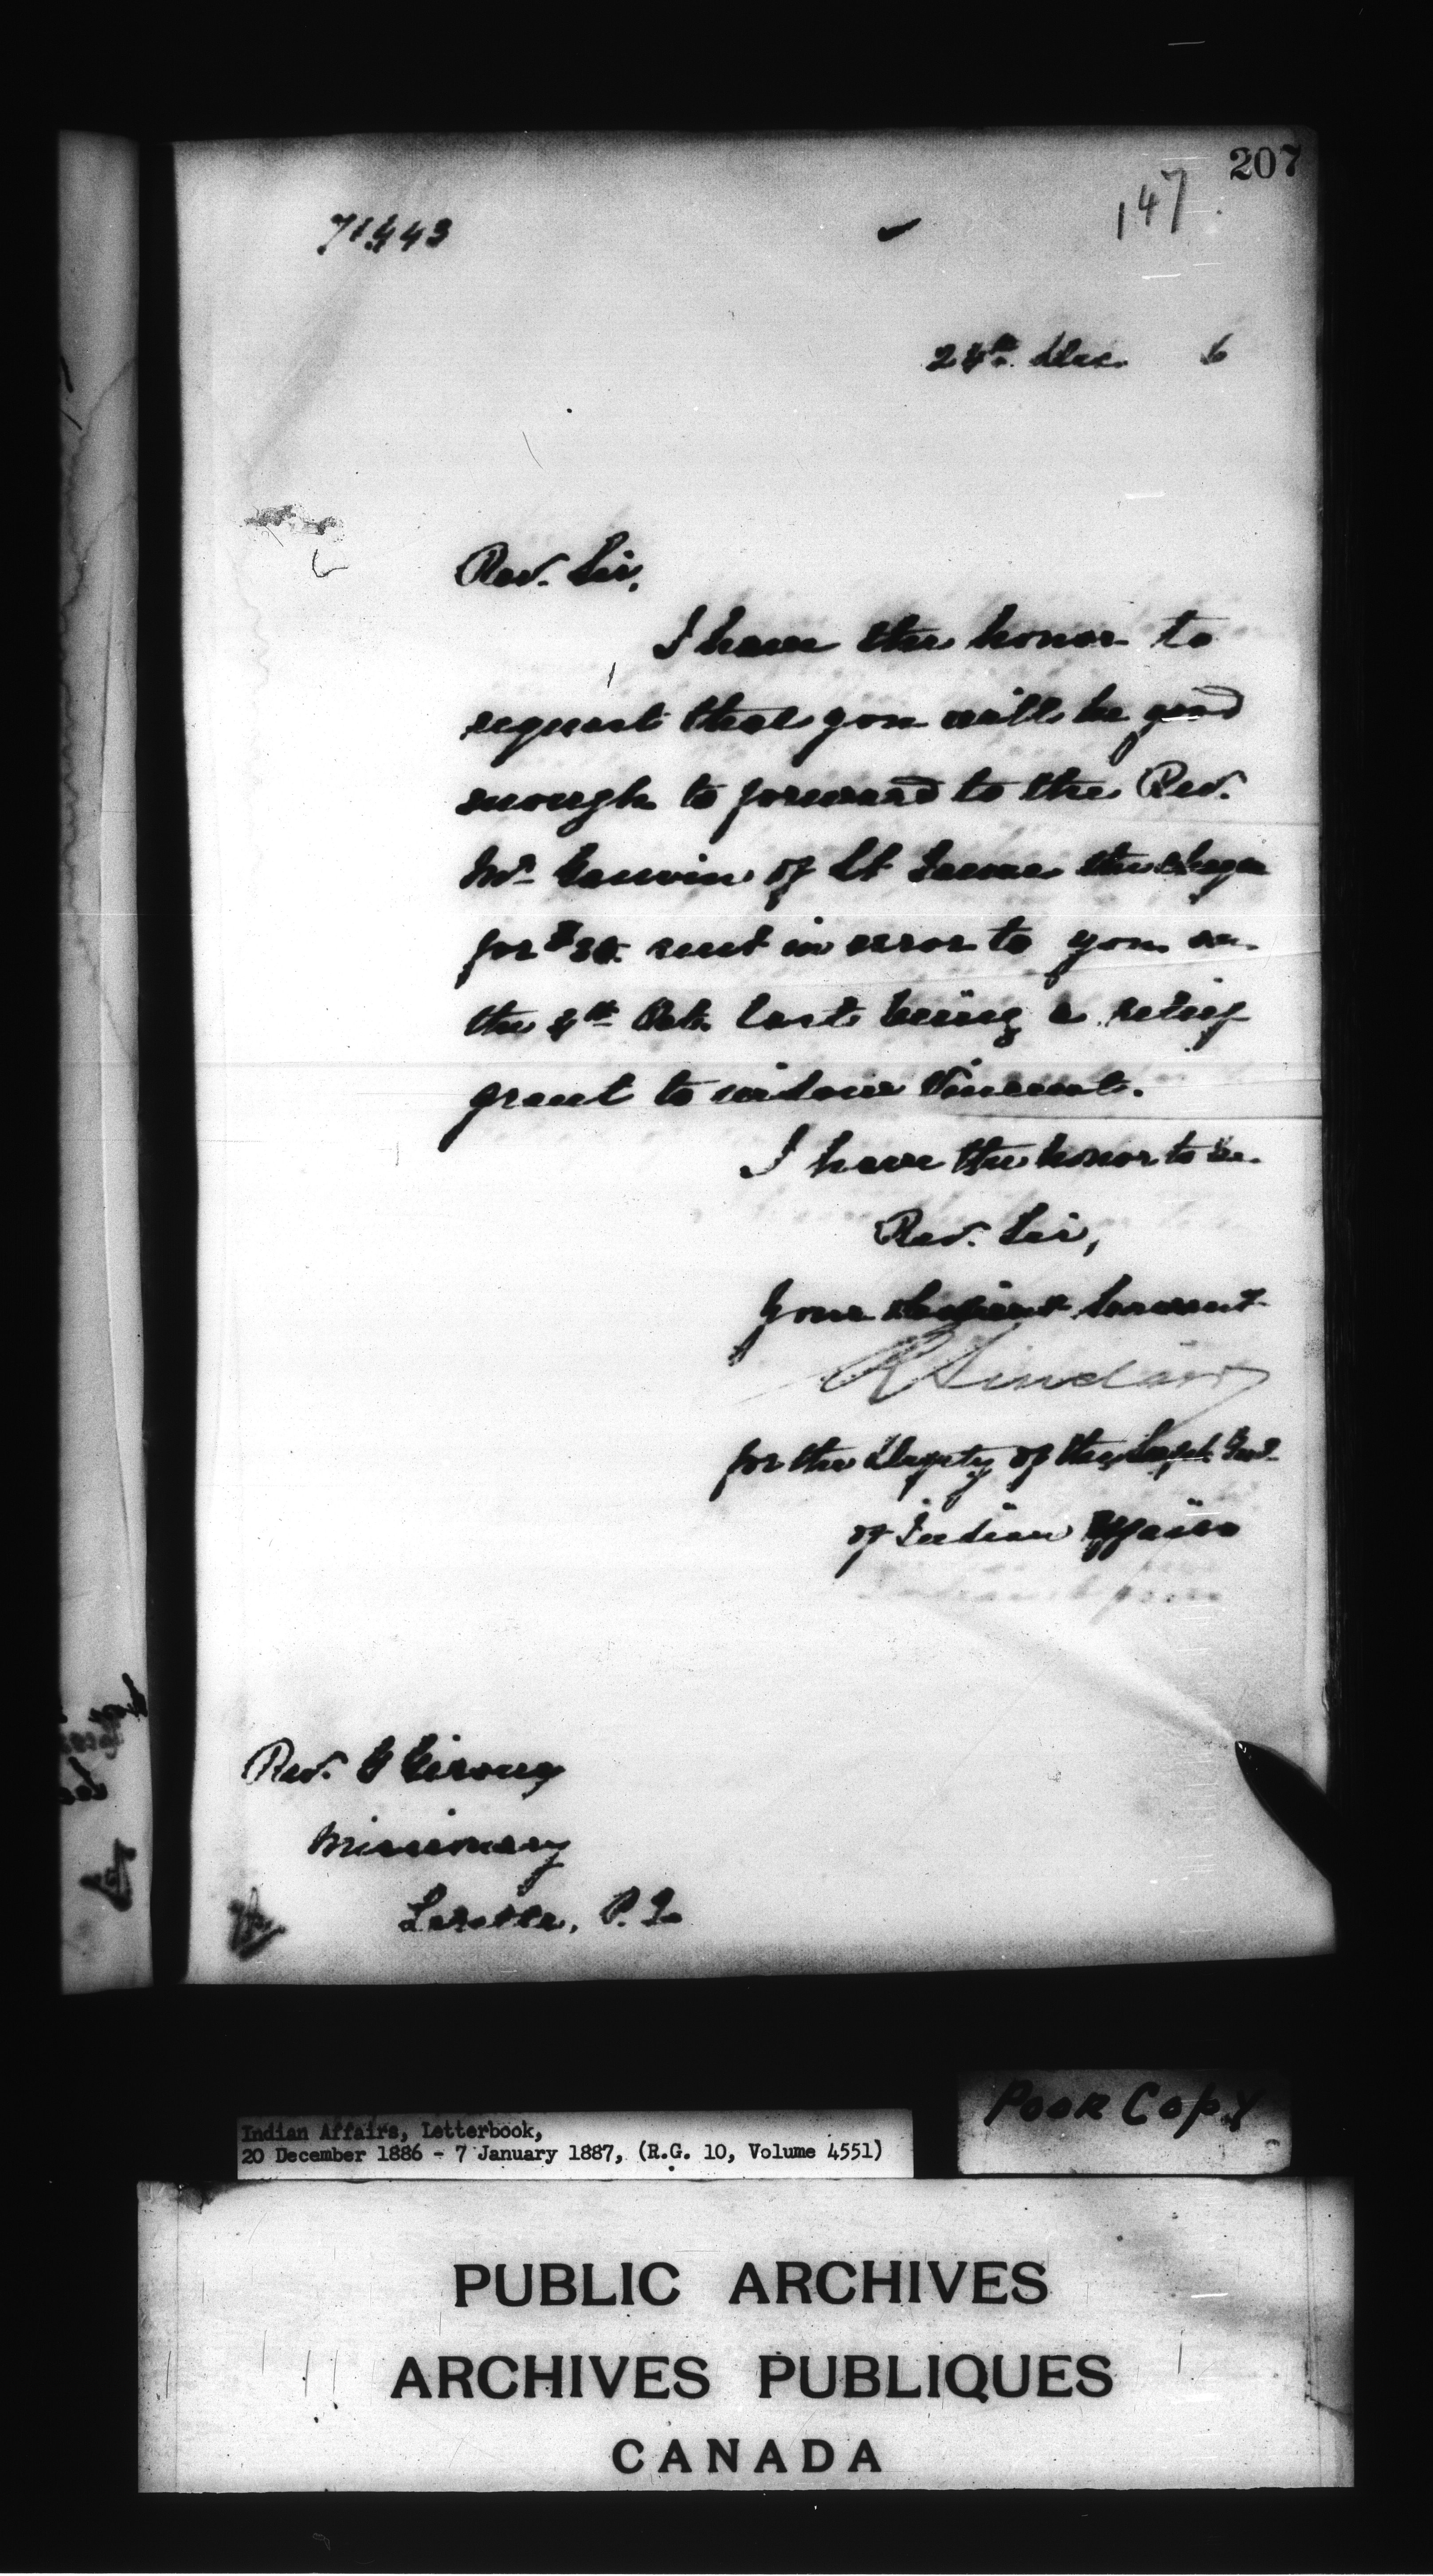 207
147
71443
24th Dec. 6
Rev. Sir,
I have the honor to
request that you will be good
enough to forward to the Rev.
Mr. Gauvin of St the cheque
for $ sent in error to you on
the 4th Oct. last being a relief
grant to widow Vincent.
I have the honor to be
Rev. Sir,
Your obedient servant
R Sinclair
for the Deputy of the Supt. Genl.
of Indian Affairs
Rev. G Giroux
Missionary
Lorette, P.Q.
Poor Copy
Indian Affairs, Letterbook,
20 December 1886 - 7 January 1887, (R.G. 10, Volume 4551)
PUBLIC ARCHIVES
ARCHIVES PUBLIQUES
CANADA